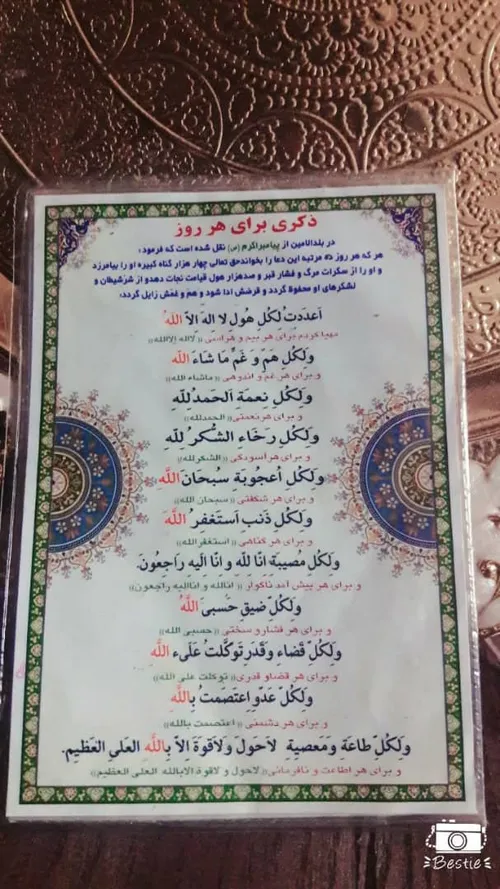 ذکری برای هر روز
در بلدالامین از پیامبراکرم (ص) نقل شده است که فرمود:
هر که هر روز ده مرتبه این دعا را بخواندحق تعالی چهار هزار گناه کبیره او را بیامرزد
و او را از سکرات مرگ و فشار قبر و صدهزار هول قیامت نجات دهدو از شرشیطان و
لشکرهای او محفوظ گردد و قرضش ادا شود و هم و غمش زایل گردد:
اَعدَدتُ لِکُلِ هَولِ لا اِلهَ اِلاّ اللهُ
مهیا کردم برای هر بیم و هراسی ((لااله الاالله))
وَلِکُلِ هَمِّ وَ غَمِّ مَا شَاءَ اللّه
و برای هر غم و اندوهی ((ماشاء الله))
وَلِکُلِ نِعمَةِ اَلحَمدُ لِلّهِ
و برای هرنعمتی ((الحمدلله))
وَلِکُلِ رَخَاءِ الشُّکرُ لِلّهِ
و برای هرآسودگی ((الشکرلله))
وَلِکُلِ اُعجُوبَةِ سُبحَانَ اللَّه
و برای هر شگفتی ((سبحان الله))
وَلِکُلِ ذَنبِ اَستَغفِرُ اللَّهَ
و برای هر گناهی ((استغفرالله))
وَلِکُلِ مُصیبَةِ اِنّا لِلّهِ وَ اِنّا اِلَیهِ رَاجِعُونَ.
و برای هر پیش آمد ناگوار ((اناالله و اناالیه راجعون))
وَلِکُلِّ ضیقِ حَسبِیَ اللَّهُ
و برای هر فشارو سختی ((حسبی الله))
وَلِکُلِّ قَضاءِ وَقَدَرِ تَوَکَّلتُ عَلَیء اللَّه
و برای هر قضاو قدری((توکلت علی الله))
وَلِکُلِّ عَدُوِّ اِعتَصَمتُ بِاللَّه
و برای هر دشمنی ((اعتصمت بالله))
وَلِکُلِّ طاعَةِ وَمَعصیَةِ لاحَولَ وَلاقُوَةَ اِلاّ بِاللَّهِ العَلیِ العَظیمِ.
و برای هر اطاعت و نافرمانی((لاحول و لاقوة الابالله العلی العظیم))
Bestie